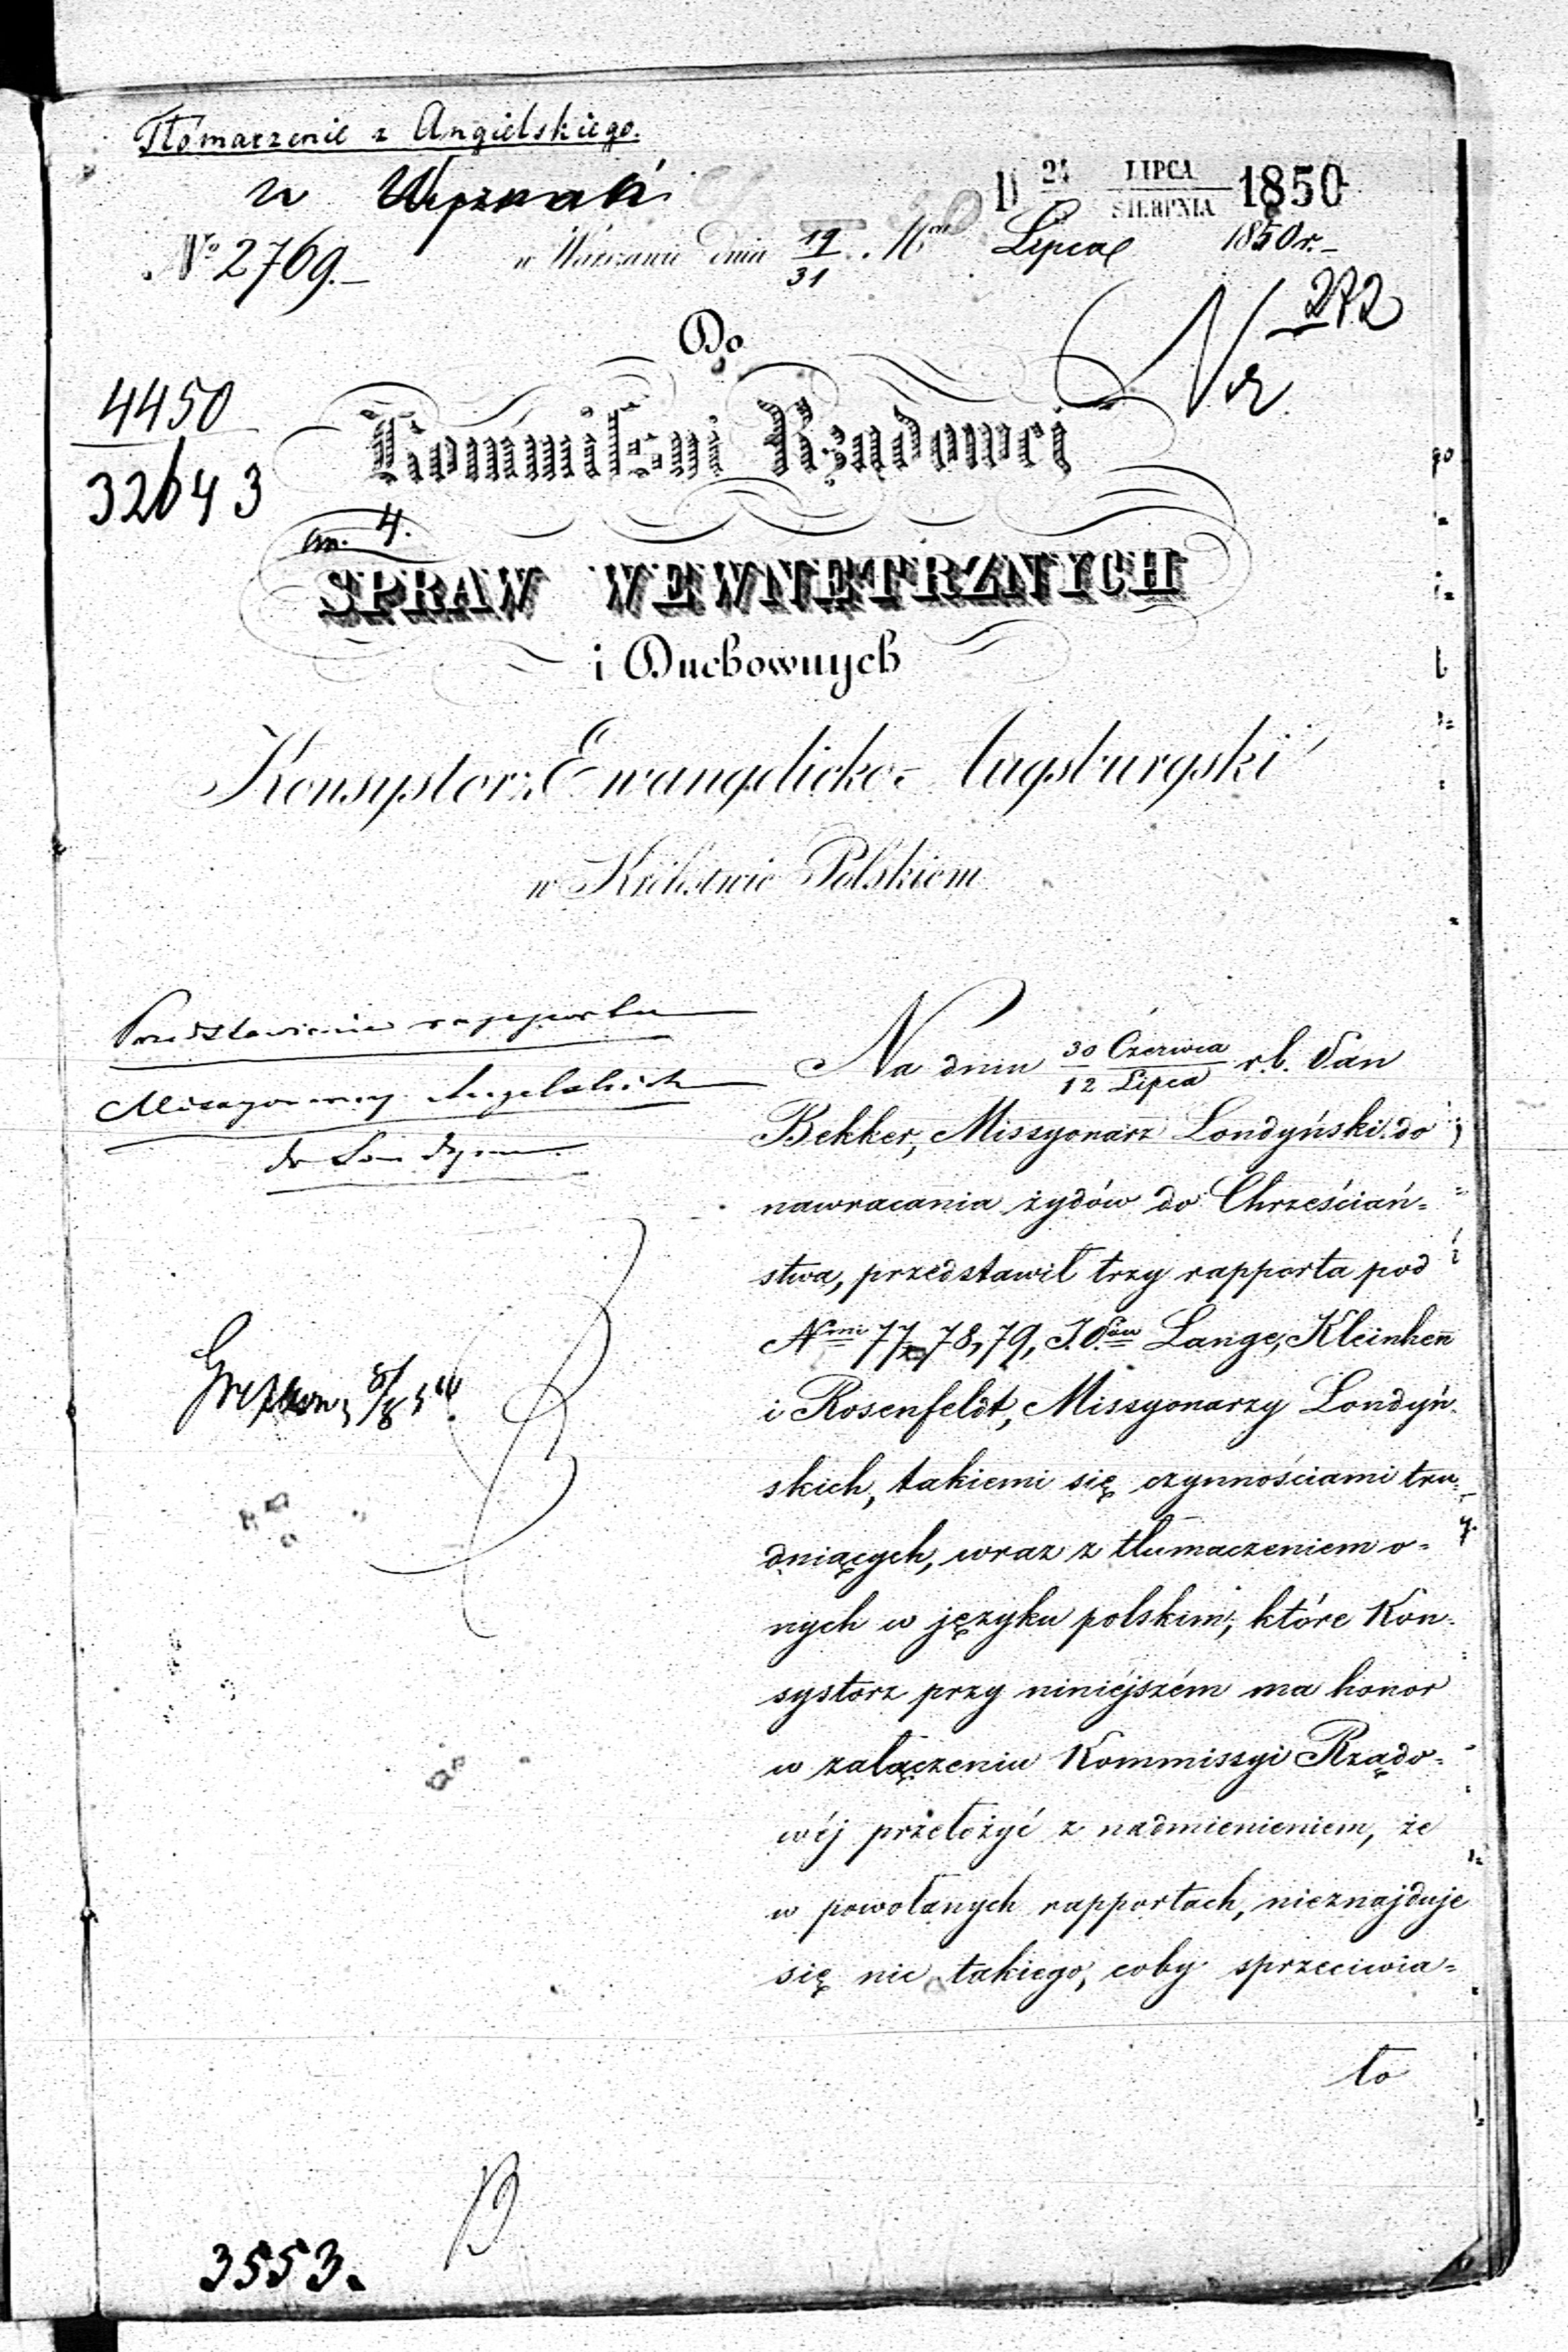 Tłómaczenie z Angielskiego.
D 24 LIPCA / SIERPNIA 1850
№ 2769.- w Warszawie dnia 19/31 Lipca 1850 r.-
Nr 272
Do
4450
32643
Kommissyi Rządowej
an. 4.
SPRAW WEWNĘTRZNYCH
i Duchownych
Konsystorz Ewangelicko-Augsburgski
w Królestwie Polskiem
Przedstawienie rapportu
Missyonarzy Angielskich
do Londynu.
Na dniu 30 Czerwca / 12 Lipca r.b. Pan
Bekker, Missyonarz Londyński do
nawracania żydów do Chrześciań=
stwa, przedstawił trzy rapporta pod
Nrmi 77, 78, 79, Lange, Kleinhen̄
i Rosenfeldt, Missyonarzy Londyń-
skich, takiemi się czynnościami tru=
dniących, wraz z tłumaczeniem o=
nych w języku polskim, które Kon-
systorz przy niniéjszém ma honor
w załączeniu Kommissyi Rządo=
wéj przełożyć z nadmienieniem, że
w powołanych rapportach, nieznajduje
się nic takiego, coby sprzeciwia=
to
3553.